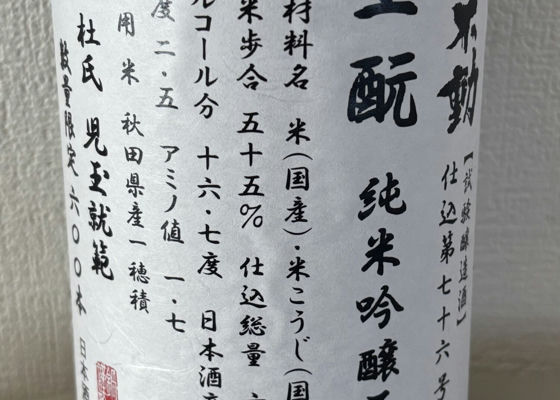 不動
【試験醸造酒】
仕込第七十六号
酛 純米吟醸
材料名 米(国産)・米こうじ(国
米歩合 五十五% 仕込総量
ルコール分 十六・七度 日本酒度
度 二・五 アミノ値 一・七
用米 秋田県産一穂積
杜氏 児玉就範
数量限定 六〇〇本 日本酒